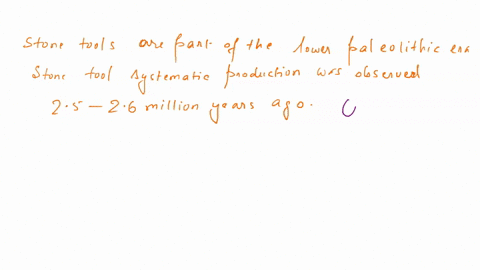 Stone tools are part of the lower paleolithic era
Stone tool systematic production was observed
2.5 – 2.6 million years ago. (